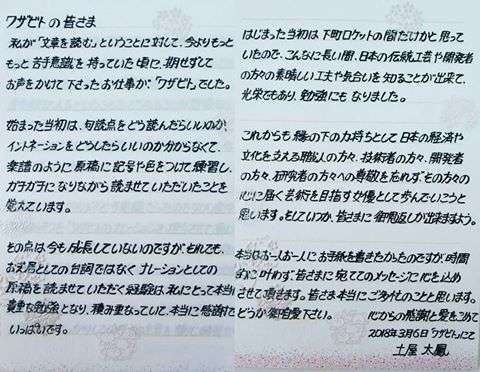 ワザビトの皆さま
私が「文章を読む」ということに対して、今よりもっと
もっと苦手意識を持っていた頃に、期せずして
お声をかけて下さったお仕事が、「ワザビト」でした。
始まった当初は、句読点をどう読んだらいいのか、
イントネーションをどうしたらいいのか分からなくて、
楽譜のように原稿に記号や色をつけて練習し、
ガチガチになりながら読ませていただいたことを
覚えています。
その点は、今も成長していないのですが、それでも、
お芝居としての台詞ではなくナレーションとしての
原稿を読ませていただく経験は、私にとって本当に
貴重な勉強となり、積み重なっていて、本当に感謝で
いっぱいです。
はじまった当初は下町ロケットの間だけかと思って
いたので、こんなに長い間、日本の伝統工芸や開発者
の方々の素晴しい工夫や気合いを知ることが出来て、
光栄でもあり、勉強にもなりました。
これからも縁の下の力持ちとして日本の経済や
文化を立える職人の方々、技術者の方々、開発者
の方々、研究者の方々への尊敬を忘れず、その方々の
心に届く芸術を目指す女優として歩んでいこうと
思います。そしていつか、皆さまに御恩返しが出来ますよう。
本当はお一人お一人にお手紙を書きたかったのですが、時間
的に叶わず、皆さまに宛ててのメッセージに心を込め
させて頂きます。皆さま本当にご多忙のことと思います。
どうか御自愛下さい。
心からの感謝と愛をこめて
2018年3月6日「ワザビト」にて
土屋 太鳳